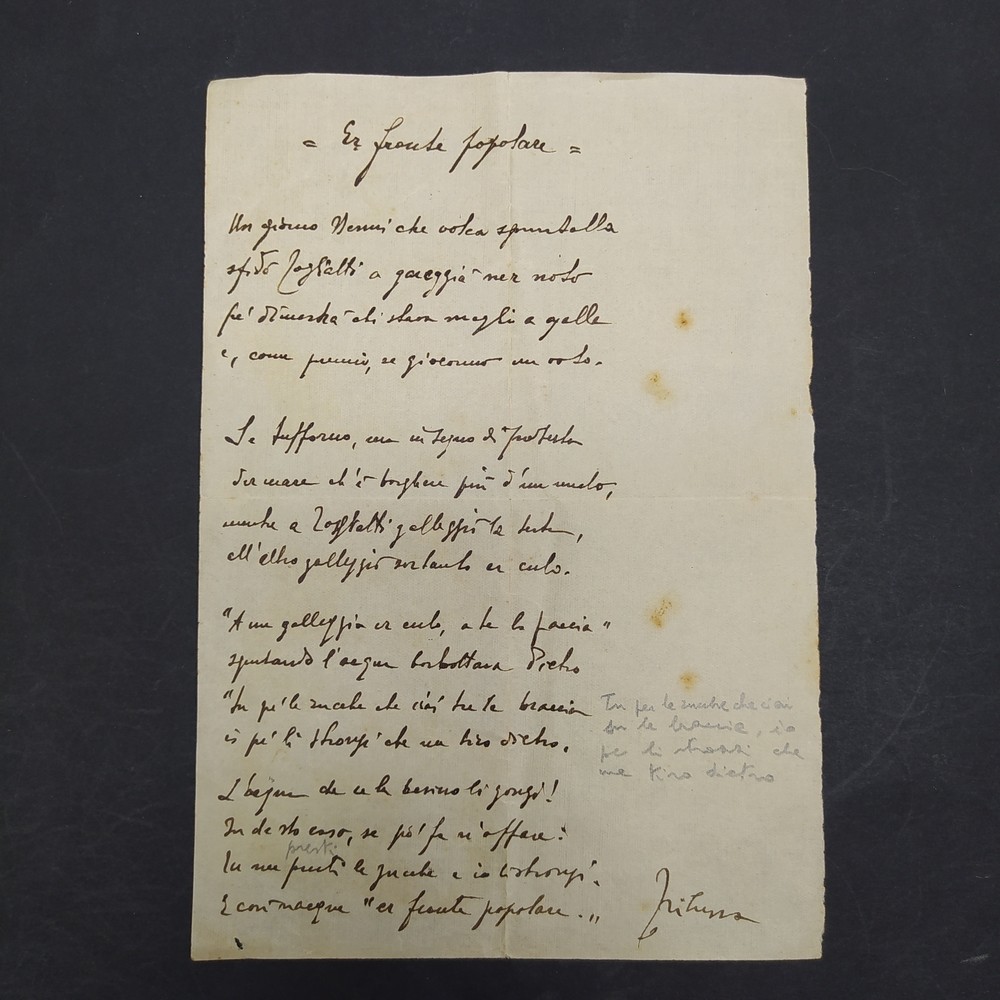 = Er fronte popolare =
Un giorno Nenni che volea spuntalla
sfidò Togliatti a gareggià ner noto
pe' dimostrà chi stava meglio a galla
e, come premio, se giocorno un voto.
Se tufforno, ma in segno di protesta
der mare ch'è borghese più d'un mulo,
mentre a Togliatti galleggiò la testa,
all'altro galleggiò sortanto er culo.
"A me galleggia er culo, a te la faccia"
sputando l'acqua borbottava Pietro
"Tu pe' le zucche che ciai tra le braccia
io pe' li stronzi che me tiro dietro.
L'acqua da a la li gonzi!
In de sto caso, se pò fa n'affare:
presti
Tu me presti le zucche e io li stronzi.
E così nacque "er fronte popolare."
Trilussa
Tu per le zucche che ciai
tra le braccia, io
per li stronzi che
me tiro dietro